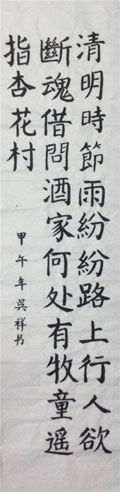 清明時節雨紛紛路上行人欲
斷魂借問酒家何处有牧童遥
指杏花村
甲午年吴祥书